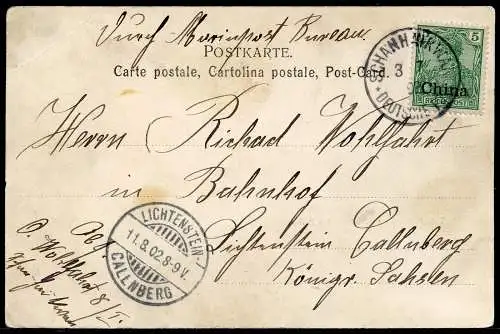 Durch Marinepost Bureau.
POSTKARTE.
Carte postale, Cartolina postale, Post-Card.
SCHANHAIKWAN
3
DEUTSCHE
5
China
REICHSPOST
Herrn Richad Wohlfahrt
in Bahnhof
Lichtenstein Callnberg
Königr. Sachsen
LICHTENSTEIN-
11.8.02.8-9V.
CALLNBERG
Abs.
O. Wohlfahrt 8/I.